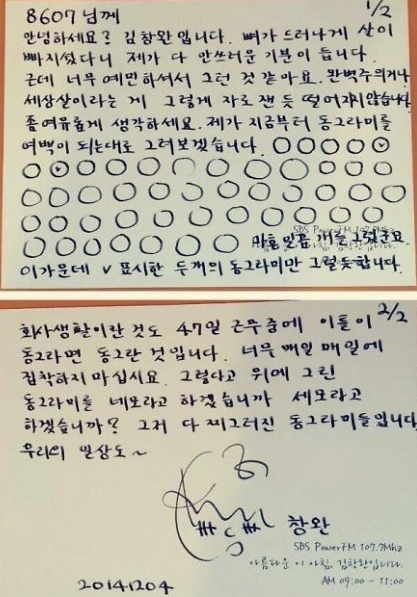 8607님께
1/2
안녕하세요? 김창완입니다. 뼈가 드러나게 살이
빠지셨다니 제가 다 안쓰러운 기분이 듭니다.
근데 너무 예민하셔서 그런 것 같아요. 완벽주의거나
세상살이라는 게 그렇게 자로 잰 듯 떨어지지 않습니다
좀 여유롭게 생각하세요. 제가 지금부터 동그라미를
여백이 되는대로 그려보겠습니다.
SBS PowerFM 107.7Mhz
마흔일곱 개를 그렸군요.
이 가운데 v 표시한 두개의 동그라미만 그럴듯합니다.
2/2
회사생활이란것도 47일 근무중에 이틀이
동그라면 동그란 것입니다. 너무 매일매일에
집착하지 마십시요. 그렇다고 위에 그린
동그라미를 네모라고 하겠습니까 세모라고
하겠습니까? 그저 다 찌그러진 동그라미들입니다
우리의 일상도~
창완
SBS PowerFM 107.7Mhz
아름다운 이 아침, 김창완입니다.
AM 09:00 - 11:00
20141204